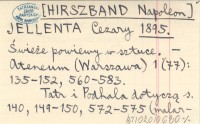 [HIRSZBAND Napoleon]
JELLENTA Cezary 1895.
Świeże powiewy w sztuce. –
Ateneum (Warszawa) 1 (77):
135-152, 560-583.
Tatr i Podhala dotyczą s.
140, 149-150, 572-575 (malar-